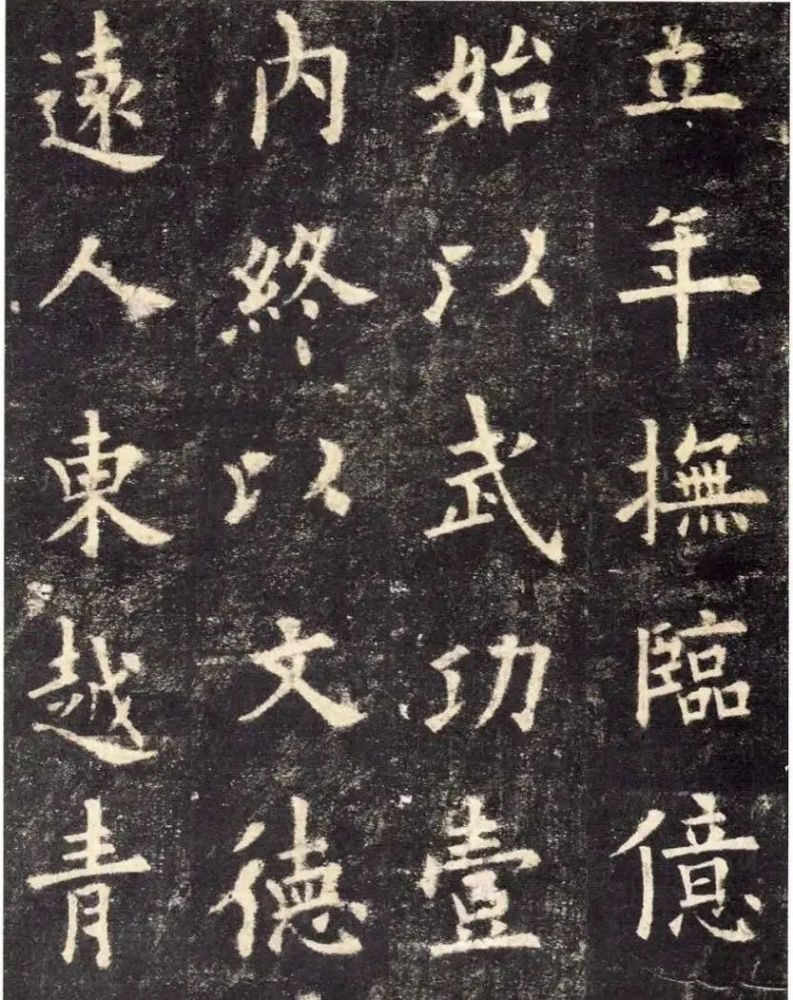 立年撫臨億
始以武功壹
内終以文德
遠人東越青